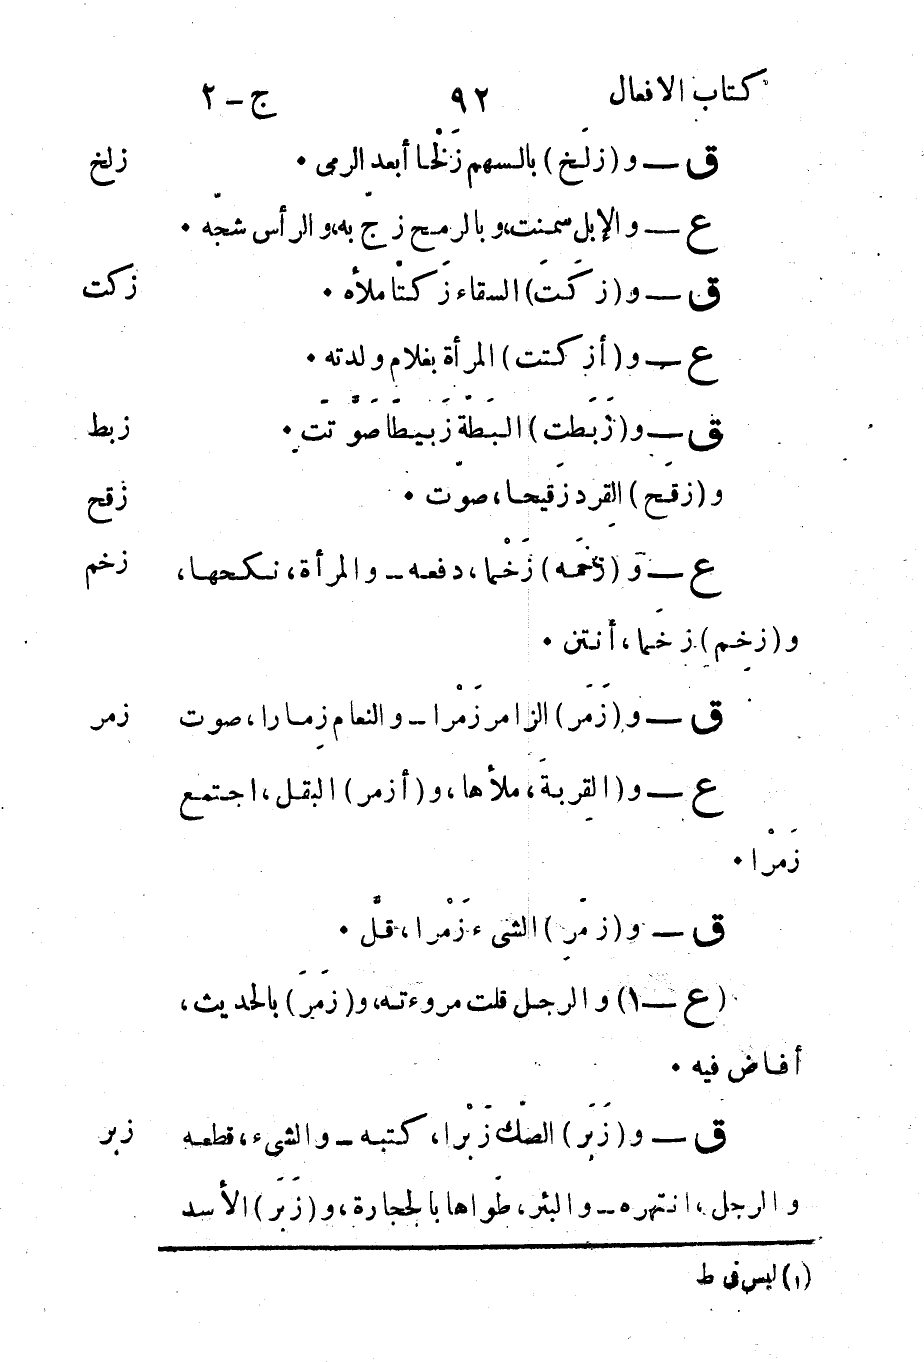 كتاب الافعال ٩٢ ج – ٢
ق — و (زلَخ) بالسهم زَلْخا أبعد الرمى • زلخ
ع — و الإبل سمنت، و بالرمح زجّ به، و الرأس شجّه •
ق — و (زكَتَ) السقاء زَكْتا ملأه • زكت
ع — و (أزكتت) المرأة بغلام ولدته •
ق — و (زَبَطت) البَطّة زَبيطًا صَوَّتت • زبط
و (زقَح) القِرد زَقيحا، صوّت • زقح
ع — و (زخَمه) زَخْما، دفعه – و المرأة، نكحها، زخم
و (زخِم) زخَما، أنتن •
ق — و (زَمَر) الزامر زَمْرا – و النعام زِمارا، صوت زمر
ع — و (القِربةَ، ملأها، و (أزمر) البقل، اجتمع
زَمْرا •
ق — و (زمَرِ) الشىء زَمْرا، قلَّ •
(ع – ١) و الرجل قلت مروءته، و (زَمَرَ) بالحديث،
أفاض فيه •
ق — و (زَبَر) الصكّ زَبْرا، كتبه – و الشىء، قطعه زبر
و الرجل، انتهره – و البئر، طَواها بالحجارة، و (زَبَر) الأسد
(١) ليس فى ط